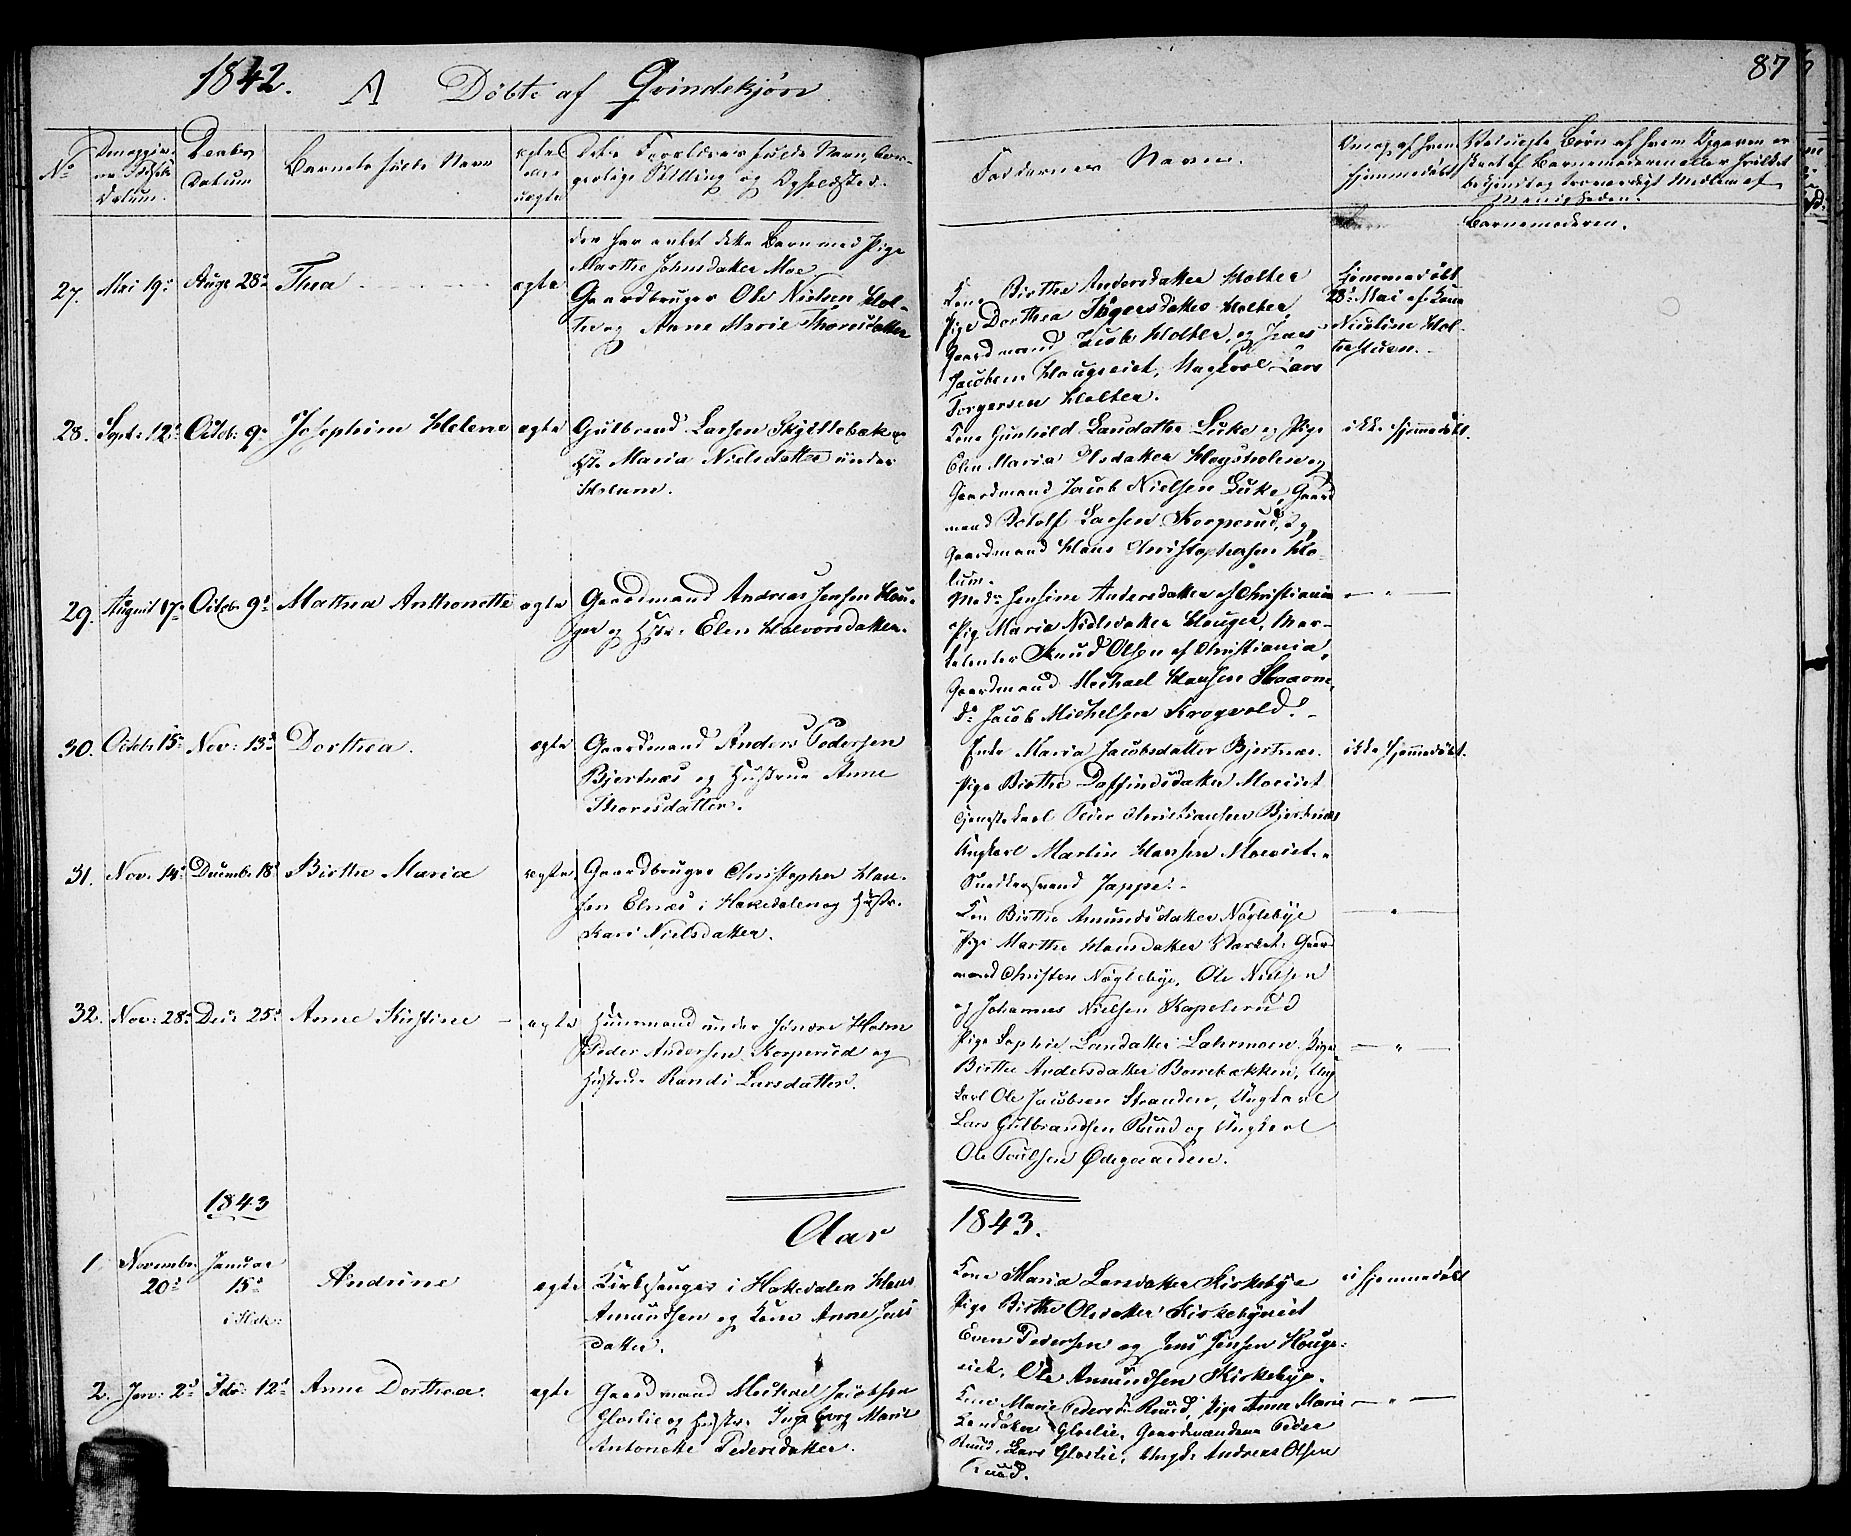 1842. A Döbte af Qvindekjön 87
No
Datum.
Daabs
Datum
Barnets fulde Navn
ægte
eller
uægte
Dets Forældres fulde Navn, bor-
gerlige Stilling og Opholdsted.
Faddernes Navne.
Om og af hvem
hjemmedöbt
Menigheden.
der har avlet dette Barn med Pige
Marthe Johnsdatter Moe
Barnemoderen.
27. Mai 19de Aug. 28de Thea ægte
Gaardbruger Ole Nielsen Hol-
ter og Anne Marie Thoresdatter
Kone Birthe Andersdatter Holter
Pige Dorthea Holter
Gaardmand Jacob Holter, og
Jacobsen Haugseiet, Ungkarl Lars
Torgersen Holter.
Hjemmedöbt
28de Mai af Kone
Hol-
terstuen.
28. Sept: 12te Octob: 9de Josephine Helene ægte
Gulbrand Larsen Skyttebak og
Hst. Maria Nielsdatter under
Holum.
Kone Gunhild Larsdatter og Pige
Elen Maria Olsdatter og
Gaardmand Jacob Nielsen Gaard
mand Larsen Korperud, og
Gaardmand Hans Christophersen Ho-
lum.
ikke hjemmedöbt.
29. August 17de Octob: 9de Mathea Anthonette ægte
Gaardmand Andreas Jensen Hou-
ger og Hst. Elen Halvorsdatter.
Jensine Andersdatter af Christiania
Pige Maria Nielsdatter Houger, Mar-
Knud Olsen af Christiania,
Gaardmand Michael Hansen
Do Jacob Michelsen Krogvold.
— " —
30. Octob: 15de Nov: 13de Dorthea. ægte
Gaardmand Anders Pedersen
Bjertnæs og Hustrue Anne
Thoresdatter.
Enke Maria Jacobsdatter Bjertnæs
Pige Birthe Daffindsdatter Moeiet
Tjenestekarl Peder Christiansen Bjertnæs
Ungkarl Martin Hansen Moeiet.
Jappe.
ikke hjemmedöbt.
31. Nov. 14de Decemb: 18de Birthe Maria ægte
Gaardbruger Christopher Han-
sen Elnæs i Hakedalen og Hustr.
Kari Nielsdatter.
Kone Birthe Amundsdatter Nöglebye
Pige Marthe Hansdatter Gaard
mand Christen Nöglebye, Ole Nielsen
og Johannes Nielsen Kapelsrud
— " —
32. Nov: 28de Dec: 25de Anne Kirstine ægte
Huusmand under söndre Holm
Peder Andersen Korperud og
Hustrue Randi Larsdatter.
Pige Sophie Larsdatter Lahrmoen. Pige
Birthe Andersdatter Borrebækken, Ung
karl Ole Jacobsen Stranden, Ungkarl
Lars Gulbrandsen Ruud og Ungkarl
Ole Poulsen Ödegaarden.
— " —
1843
Aar 1843.
1 Novembr. 20de Januar 15de i Hak: Andrine ægte
Kirkesanger i Hakedalen Hans
Amundsen og Kone Anne Jens
datter.
Kone Maria Larsdatter Kirkebye
Pige Birthe Olsdatter Kirkebyeiet
Even Pedersen og Jens Jensen Houge-
eiet, Ole Amundsen Kirkebye.
ei hjemmedöbt
2. Jan: 2de Feb: 12te Anne Dorthea. ægte
Gaardmand Michael Jacobsen
Gloslie og Hustr. Ingeborg Marie
Antonette Pedersdatter.
Kone Marie Ruud, Pige Anne Marie
Gloslie, Gaardmændene Peder
Ruud, Lars Gloslie, Ungk. Andreas Olsen
Ruud.
— " —